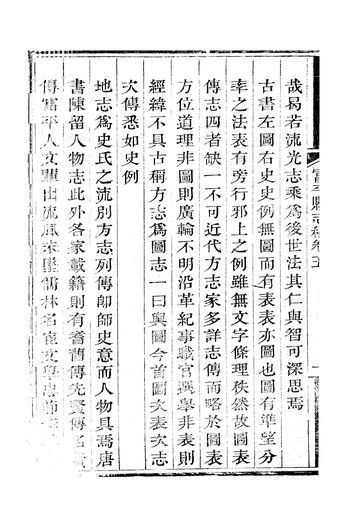 哉曷若流光志乘爲後世法其仁與智可深思焉
古書左圖右史史例無圖而有表表亦圖也圖有準望分
率之法表有旁行邪上之例雖無文字條理秩然故圖表
傳志四者缺一不可近代方志家多詳志傳而略於圖表
方位道理非圖則廣輪不明沿革紀事職官選舉非表則
經緯不具古稱方志爲圖志一曰輿圖今首圖次表次志
次傳悉如史例
地志爲史氏之流別方志列傳卽師史意而人物具焉唐
書陳留人物志此外各家載籍則有耆舊傳先賢傳名
傳富平人文輩出流風未墜儒林名宦文學忠節
富平縣志稿卷五
一